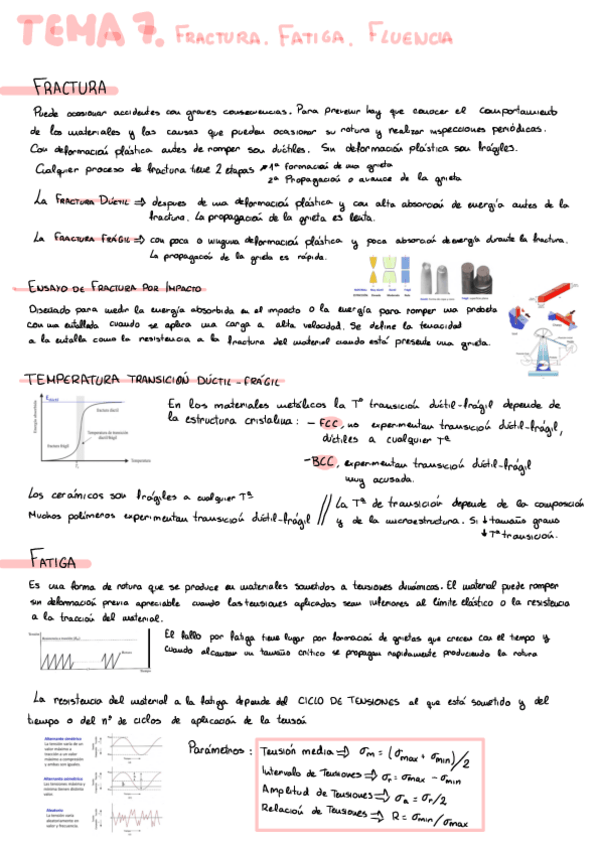 TEMA 7. FRACTURA. FATIGA. FLUENCIA
FRACTURA
Puede ocasionar accidentes con graves consecuencias. Para prevenir hay que conocer el comportamiento
de los materiales y las causas que pueden ocasionar su rotura y realizar inspecciones periódicas.
Con deformación plástica antes de romper son dúctiles. Sin deformación plástica son frágiles.
Cualquier proceso de fractura tiene 2 etapas 1ª formación de una grieta
2ª Propagación o avance de la grieta
La FRACTURA DÚCTIL ⇒ despues de una deformación plástica y con alta absorción de energía antes de la
fractura. La propagación de la grieta es lenta.
La FRACTURA FRÁGIL ⇒ con poca o ninguna deformación plástica y poca absorción de energía durante la fractura.
La propagación de la grieta es rápida.
ENSAYO DE FRACTURA POR IMPACTO
Diseñado para medir la energía absorbida en el impacto o la energía para romper una probeta
con una entallada cuando se aplica una carga a alta velocidad. Se define la tenacidad
a la entalla como la resistencia a la fractura del material cuando está presente una grieta.
TEMPERATURA TRANSICIÓN DÚCTIL-FRÁGIL
Energía absorbida
Fractura dúctil
Temperatura de transición
dúctil/frágil
Fractura frágil
Temperatura
En los materiales metálicos la Tª transición dúctil-frágil depende de
la estructura cristalina: - FCC, no experimentan transición dúctil-frágil,
dúctiles a cualquier Tª
- BCC, experimentan transición dúctil-frágil
muy acusada.
Los cerámicos son frágiles a cualquier Tª
Muchos polímeros experimentan transición dúctil-frágil
// La Tª de transición depende de la composición
y de la microestructura. Si ↓ tamaño grano
↓ Tª transición.
FATIGA
Es una forma de rotura que se produce en materiales sometidos a tensiones dinámicas. El material puede romper
sin deformación previa apreciable cuando las tensiones aplicadas sean inferiores al límite elástico o la resistencia
a la tracción del material.
El fallo por fatiga tiene lugar por formación de grietas que crecen con el tiempo y
cuando alcanzan un tamaño crítico se propagan rapidamente produciendo la rotura
La resistencia del material a la fatiga depende del CICLO DE TENSIONES al que está sometido y del
tiempo o del nº de ciclos de aplicación de la tensión
Alternante simétrico
La tensión varía de un
valor máximo a
tracción a un valor
máximo a compresión
y ambas son iguales.
Alternante asimétrico
Las tensiones máxima y
mínima tienen distinto
valor.
Aleatorio
La tensión varía
aleatoriamente en
valor y frecuencia.
Parámetros: Tensión media ⇒ σm = (σmax + σmin)/2
Intervalo de Tensiones ⇒ σr = σmax - σmin
Amplitud de Tensiones ⇒ σa = σr/2
Relación de Tensiones ⇒ R = σmin/σmax